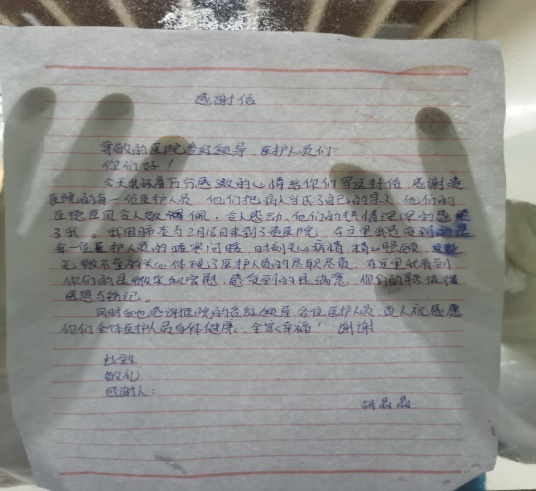 感谢信
尊敬的医院各级领导、医护人员们:
你们好!
今天我怀着万分感激的心情给你们写这封信,感谢
医院的每一位医护人员,他们把病人当成了自己的亲人,他们的
医德医风令人敬佩,令人感动,他们的热情深深的感
了我。我因肺炎与2月16日来到了医院,在这里我感受到的是
每一位医护人员的嘘寒问暖,时刻关心病情,精心照顾,
无微不至的关心体现了医护人员的尽职尽责,在这里我看到
你们的是微笑和宽慰,感受到的是温亮,你们的
感恩与铭记。
同时我也感谢医院的各级领导,各位医护人员,真人祝愿
你们全体医护人员身体健康、全家幸福!谢谢
此致
敬礼
感谢人:
胡晶晶